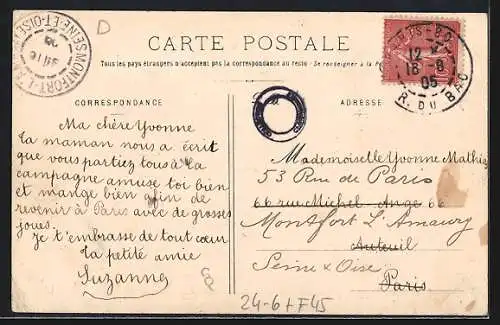 D
MONFORT-L'A
SEINE-ET-OISE
CARTE POSTALE
Tous les pays étrangers n'acceptent pas la correspondance au recto - Se renseigner à la
CORRESPONDANCE
ADRESSE
12
18 - 8
05
R. DU BAC
Ma chère Yvonne
ta maman nous a écrit
que vous partiez tous à la
campagne amuse toi bien
et mange bien afin de
revenir à Paris avec de grosses
joues.
Je t'embrasse de tout cœur
ta petite amie
Suzanne
Mademoiselle Yvonne Mathie
53 Rue de Paris
66 rue Michel-Ange 66
Montfort L'Amaury
Auteuil
Seine & Oise
Paris
24-6 + F45